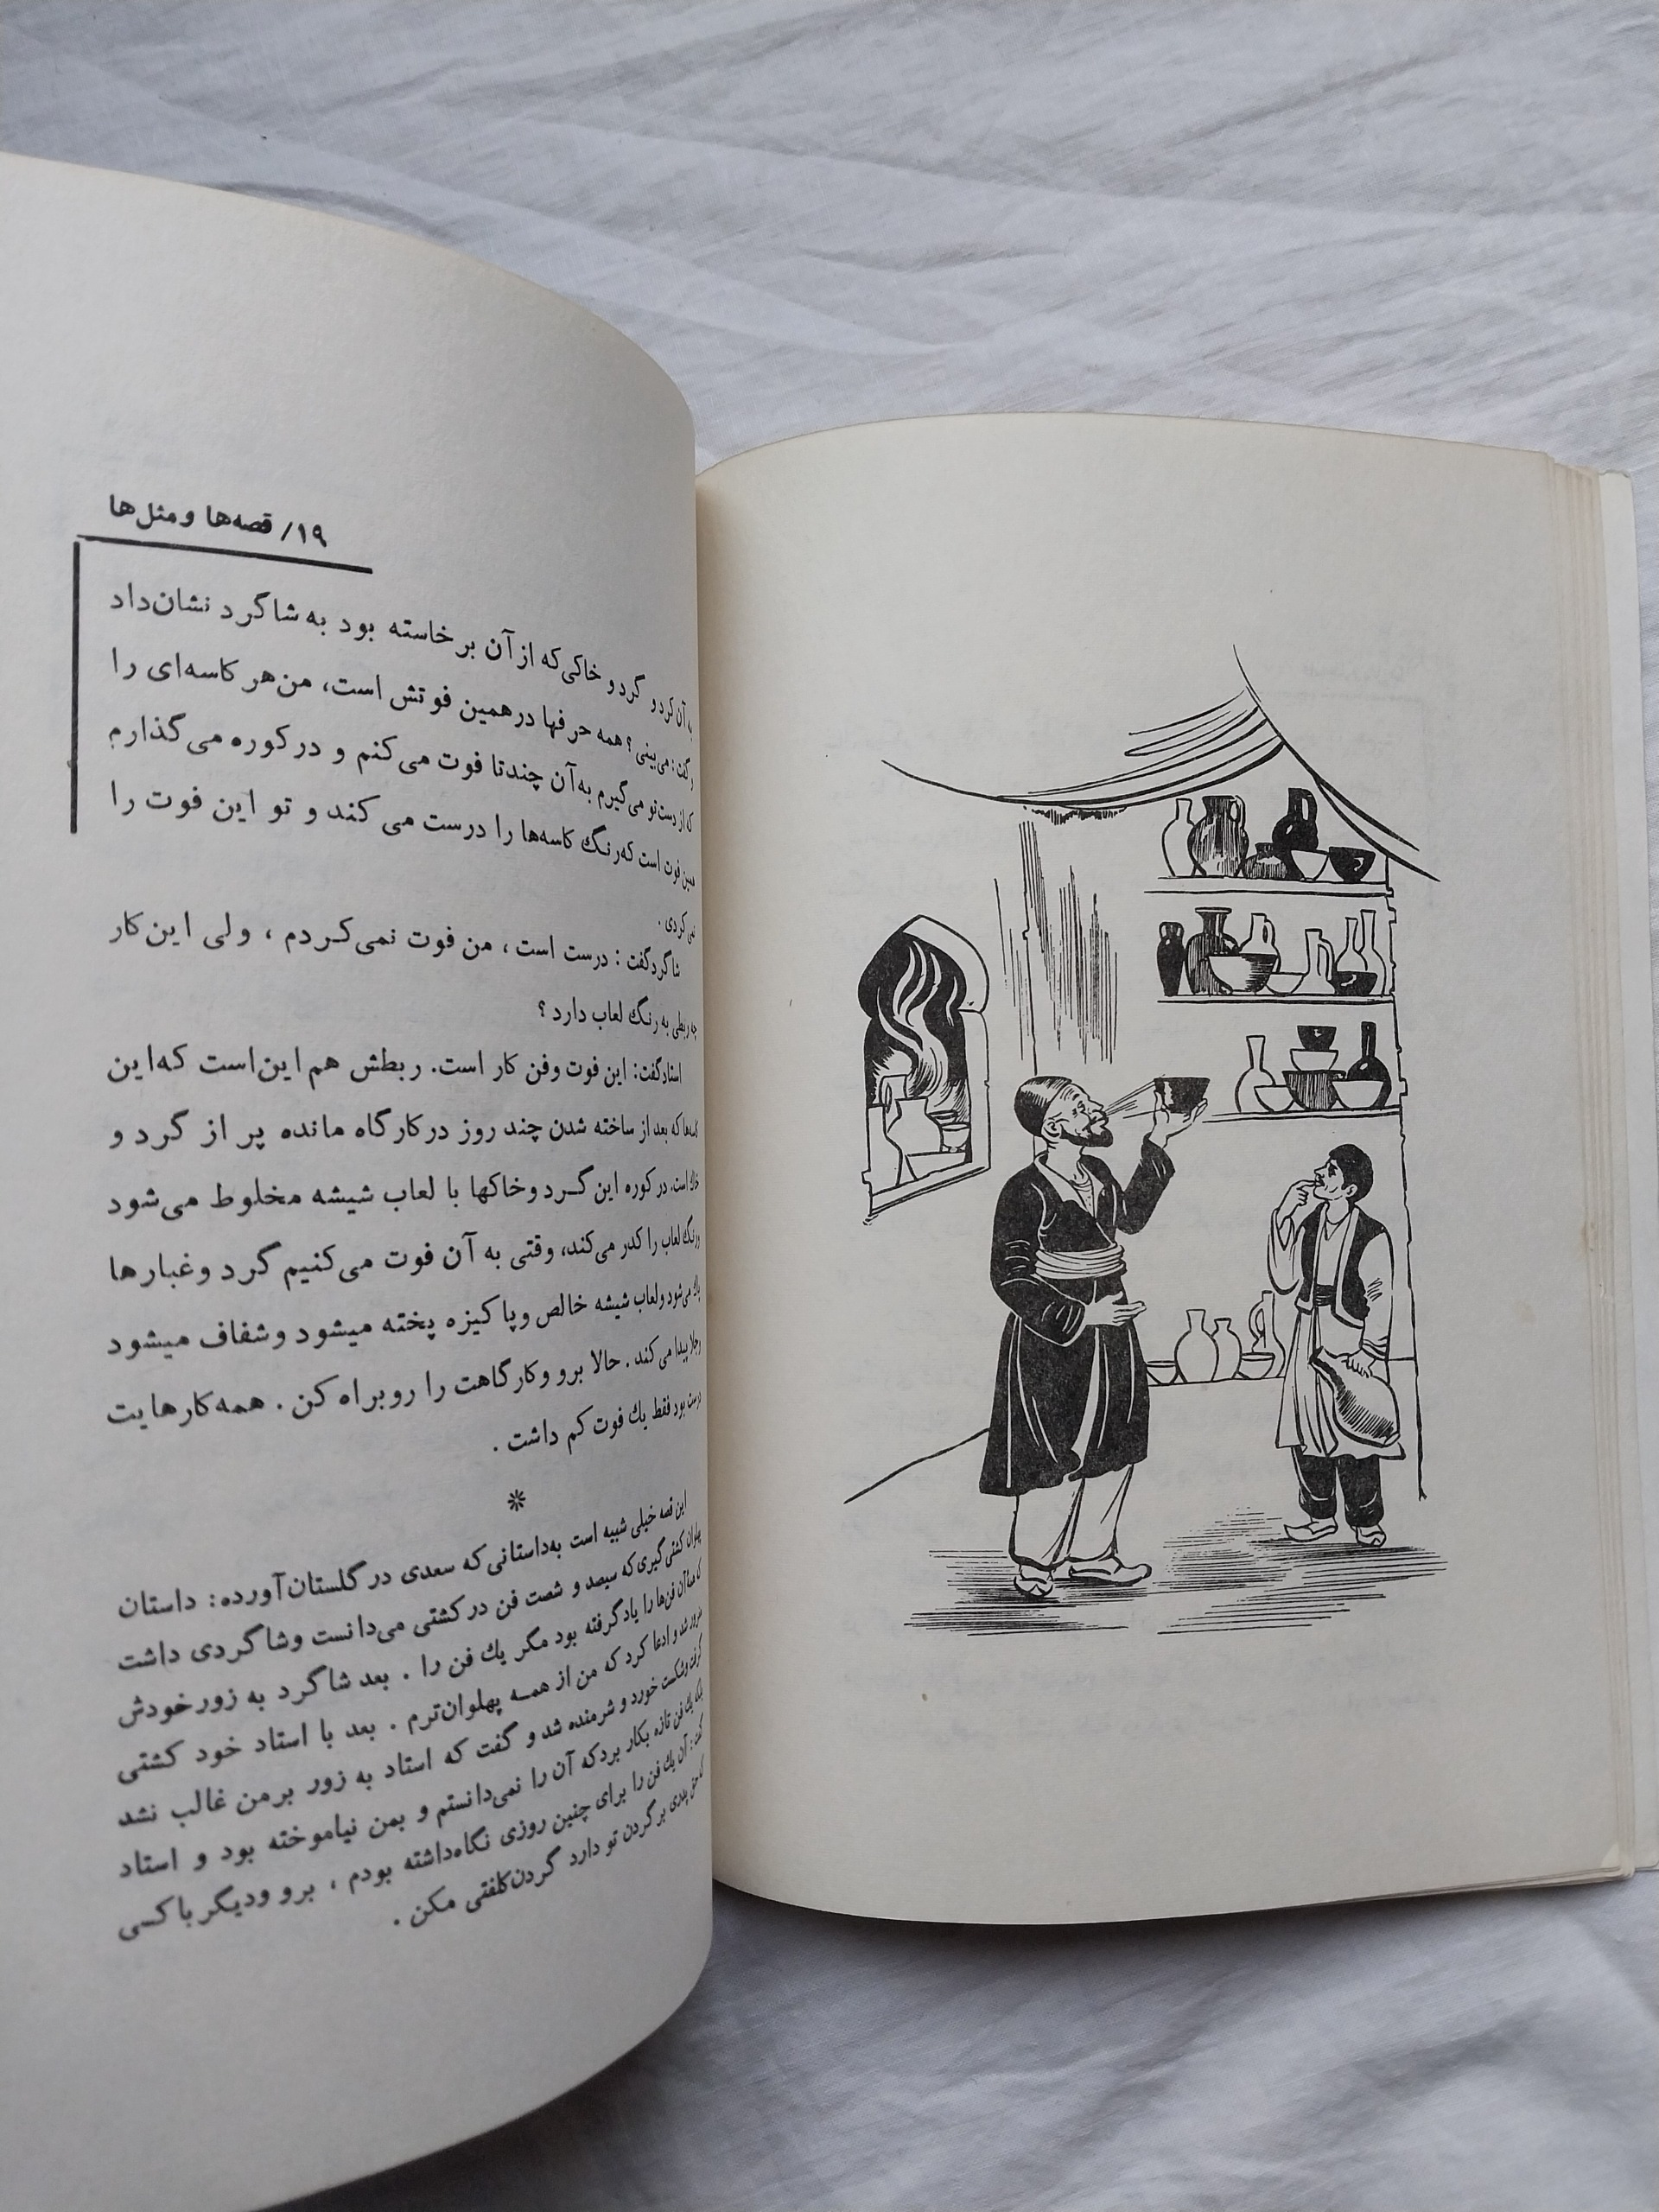 ۱۹/ قصه‌ها و مثل‌ها
به آن کرد و گرد و خاکی که از آن برخاسته بود به شاگرد نشان داد
و گفت: می‌بینی؟ همه حرفها در همین فوتش است، من هر کاسه‌ای را
که از دست تو می‌گیرم به آن چندتا فوت می‌کنم و در کوره می‌گذارم
همین فوت است که رنگ کاسه‌ها را درست می‌کند و تو این فوت را
نمی‌کردی.
شاگرد گفت: درست است، من فوت نمی‌کردم، ولی این کار
چه ربطی به رنگ لعاب دارد؟
استاد گفت: این فوت و فن کار است. ربطش هم این است که این
کاسه‌ها که بعد از ساخته شدن چند روز در کارگاه مانده پر از گرد و
خاك است، در کوره این گرد و خاکها با لعاب شیشه مخلوط می‌شود
و رنگ لعاب را کدر می‌کند، وقتی به آن فوت می‌کنیم گرد و غبارها
پاك می‌شود و لعاب شیشه خالص و پاکیزه پخته میشود و شفاف میشود
و جلا پیدا می‌کند. حالا برو و کارگاهت را روبراه کن. همه کارهایت
درست بود فقط یك فوت کم داشت.
*
این قصه خیلی شبیه است به داستانی که سعدی در گلستان آورده: داستان
پهلوان کشتی‌گیری که سیصد و شصت فن در کشتی می‌دانست و شاگردی داشت
که همه آن فن‌ها را یاد گرفته بود مگر یك فن را. بعد شاگرد به زور خودش
مغرور شد و ادعا کرد که من از همه پهلوان‌ترم. بعد با استاد خود کشتی
گرفت و شکست خورد و شرمنده شد و گفت که استاد به زور بر من غالب نشد
بلکه یك فن تازه بکار برد که آن را نمی‌دانستم و بمن نیاموخته بود و استاد
گفت: آن یك فن را برای چنین روزی نگاه داشته بودم، برو و دیگر با کسی
که حق پدری بر گردن تو دارد گردن‌کلفتی مکن.